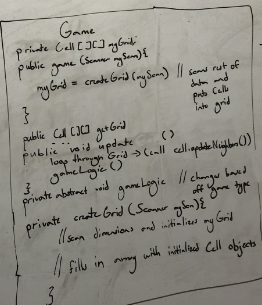 Game
private Cell [][] myGrid;
public game (Scanner myScan){
myGrid = createGrid (myScan) // scans rest of
data and
puts Cells
into grid
}
}
public Cell [][] getGrid
public void update ()
loop through Grid → (call cell.updateNeighbors())
gameLogic ()
}
private abstract void gameLogic // changes based
off game type
private createGrid (Scanner myScan){
// scan dimensions and initializes myGrid
// fills in array with initialized Cell objects
}